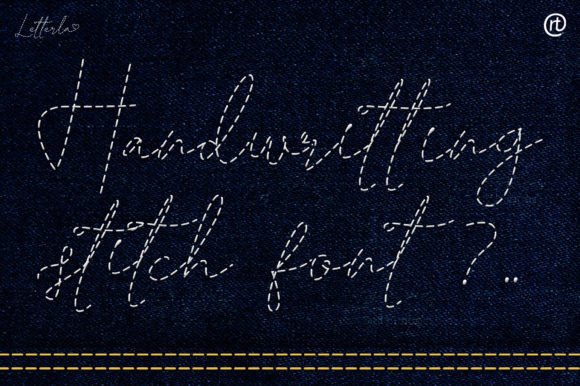 Letterla
rt
Handwritting
stitch font ?..